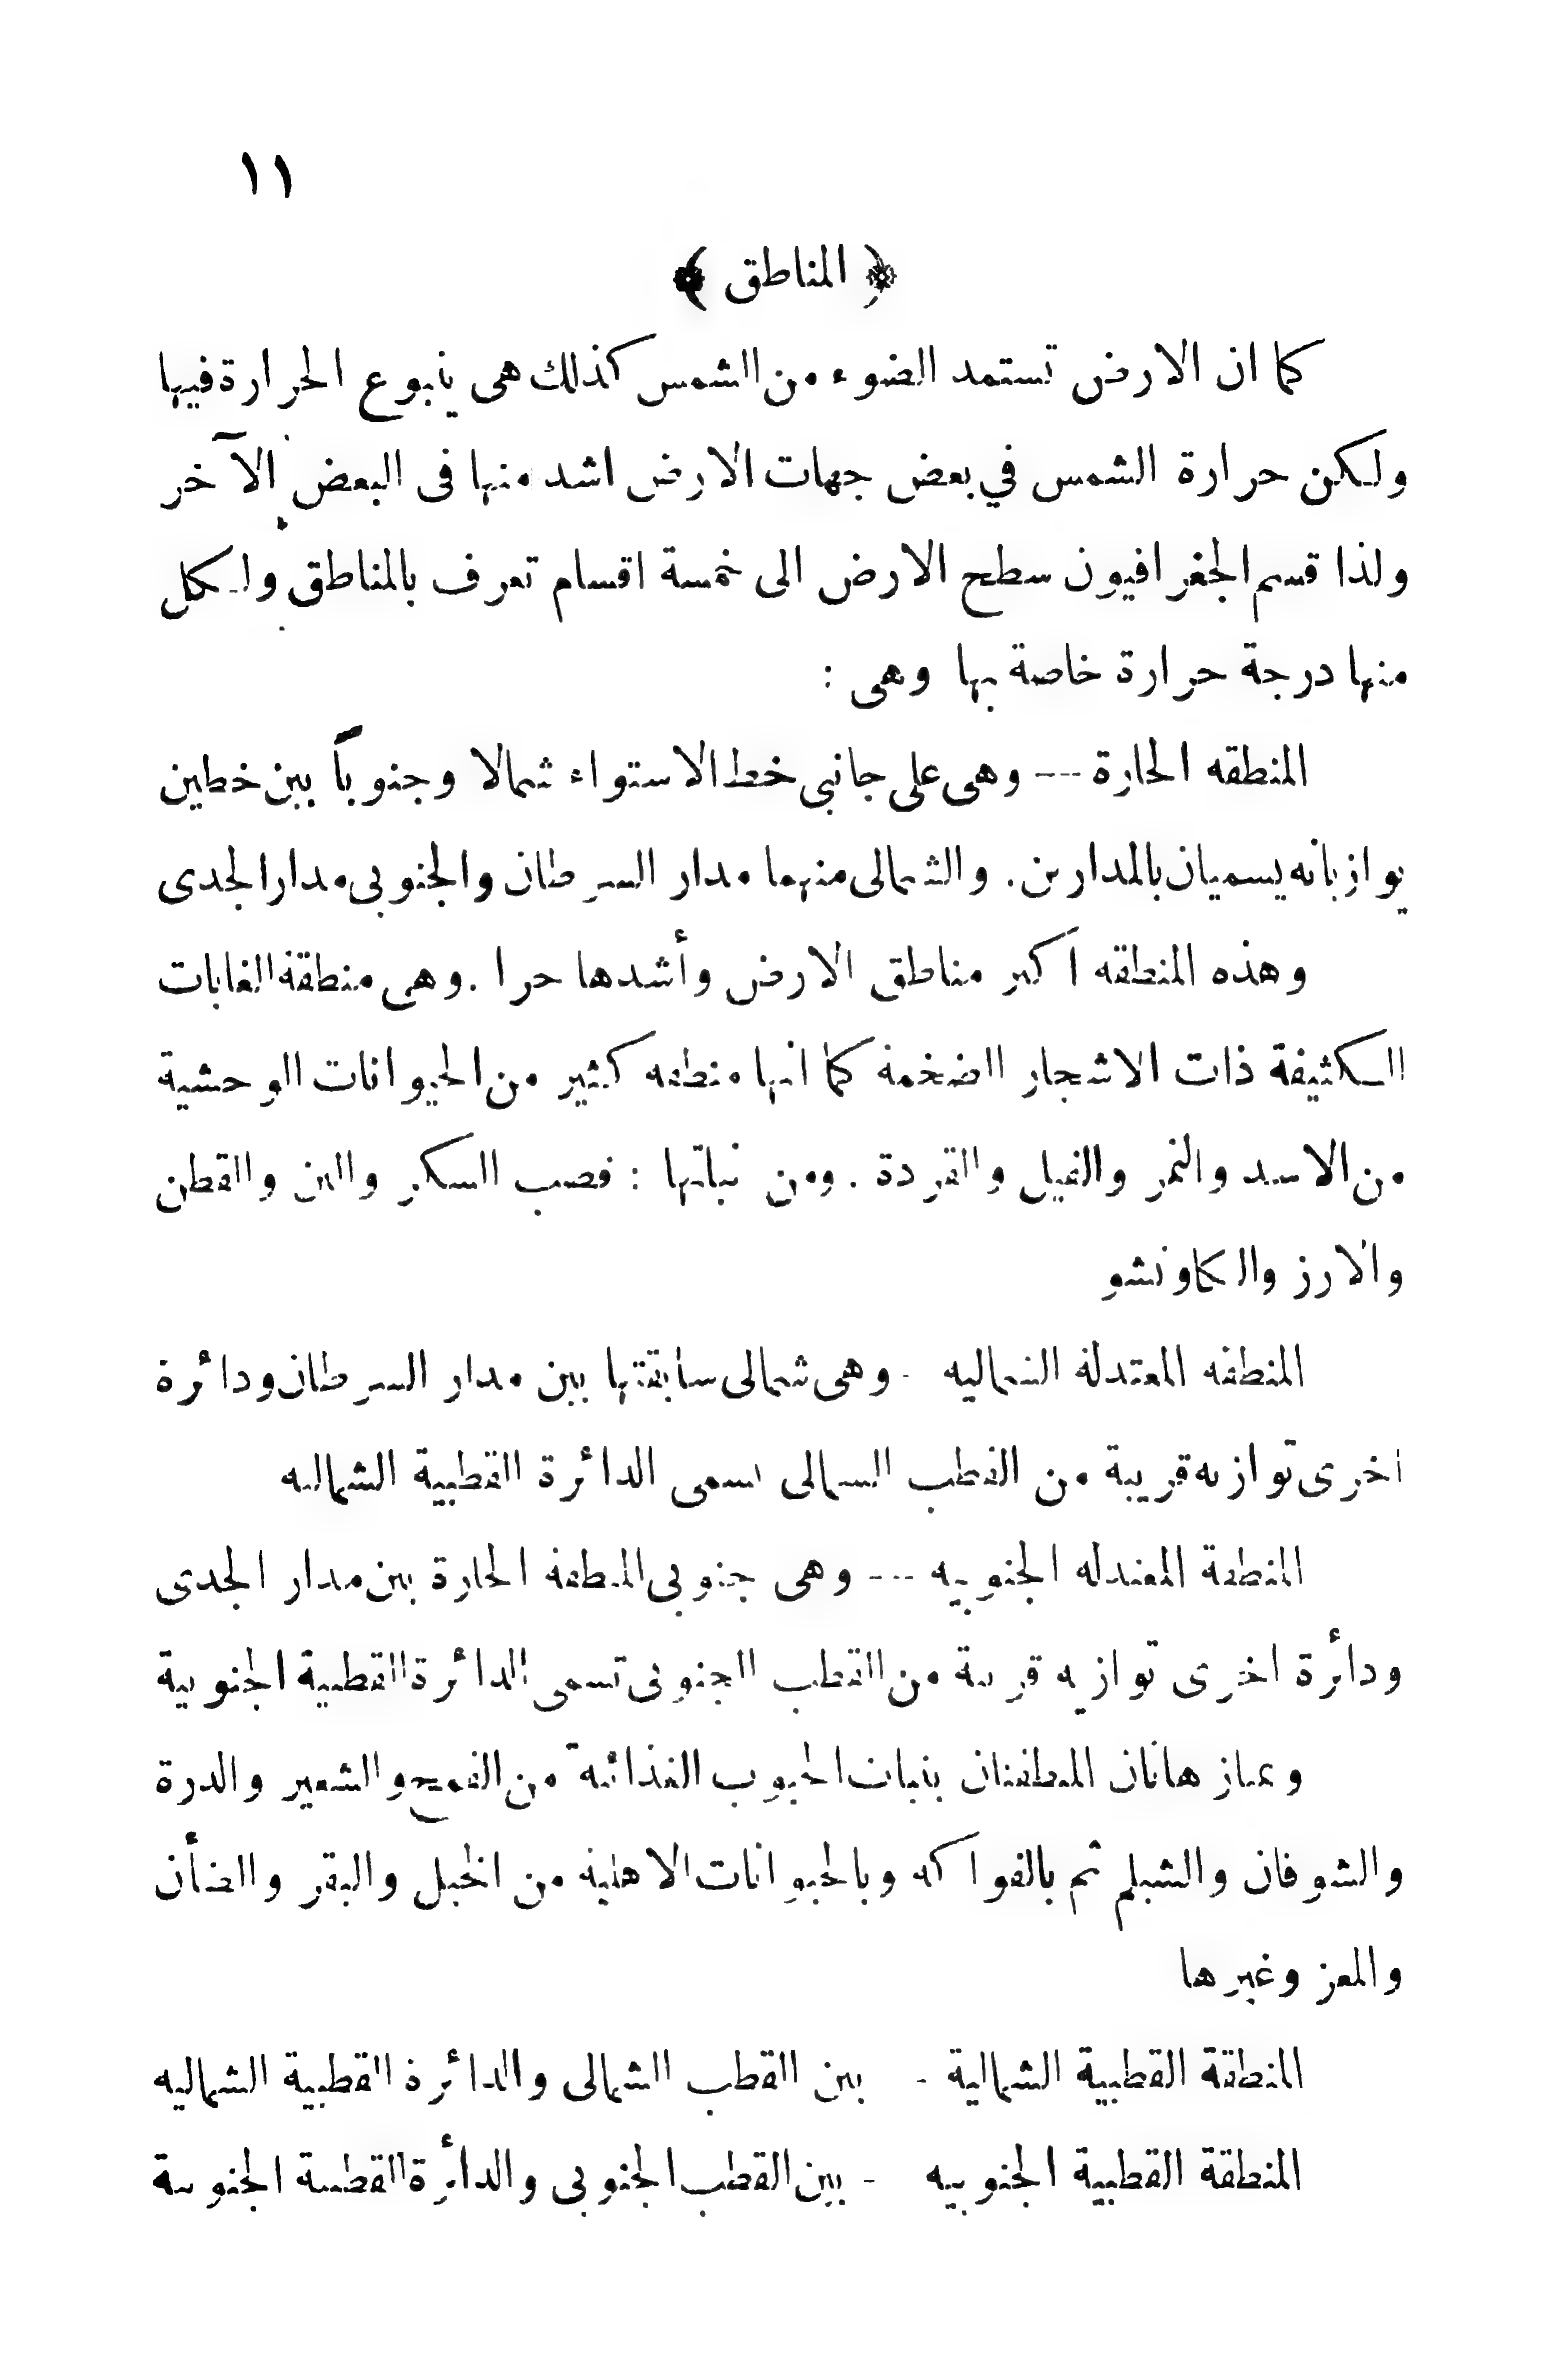 ١١
﴿ المناطق ﴾
كما ان الارض تستمد الضوء من الشمس كذلك هى ينبوع الحرارة فيها
ولكن حرارة الشمس في بعض جهات الارض اشد منها فى البعض الآخر
ولذا قسم الجغرافيون سطح الارض الى خمسة اقسام تعرف بالمناطق ولكل
منها درجة حرارة خاصة بها وهى :
المنطقه الحارة --- وهى على جانبى خط الاستواء شمالا وجنوباً بين خطين
يوازيانه يسميان بالمدارين. والشمالى منهما مدار السرطان والجنوبى مدار الجدى
وهذه المنطقه اكبر مناطق الارض وأشدها حرا . وهى منطقة الغابات
الكثيفة ذات الاشجار الضخمة كما انها منطقه كثير من الحيوانات الوحشية
من الاسد والنمر والفيل والقردة . ومن نباتها : قصب السكر والبن والقطن
والارز والكاوتشو
المنطقه المعتدلة الشماليه - وهى شمالى سابقتها بين مدار السرطان ودائرة
اخرى توازيه قريبة من القطب الشمالى تسمى الدائرة القطبية الشماليه
المنطقة المعتدله الجنوبيه --- وهى جنوبى المنطقة الحارة بين مدار الجدى
ودائرة اخرى توازيه قريبة من القطب الجنوبى تسمى الدائرة القطبية الجنوبية
وتمتاز هاتان المنطقتان بنبات الحبوب الغذائية من القمح والشعير والذرة
والشوفان والشيلم ثم بالفواكه وبالحيوانات الاهلية من الخيل والبقر والضأن
والمعز وغيرها
المنطقة القطبية الشمالية - بين القطب الشمالى والدائرة القطبية الشماليه
المنطقة القطبية الجنوبيه - بين القطب الجنوبى والدائرة القطبية الجنوبية